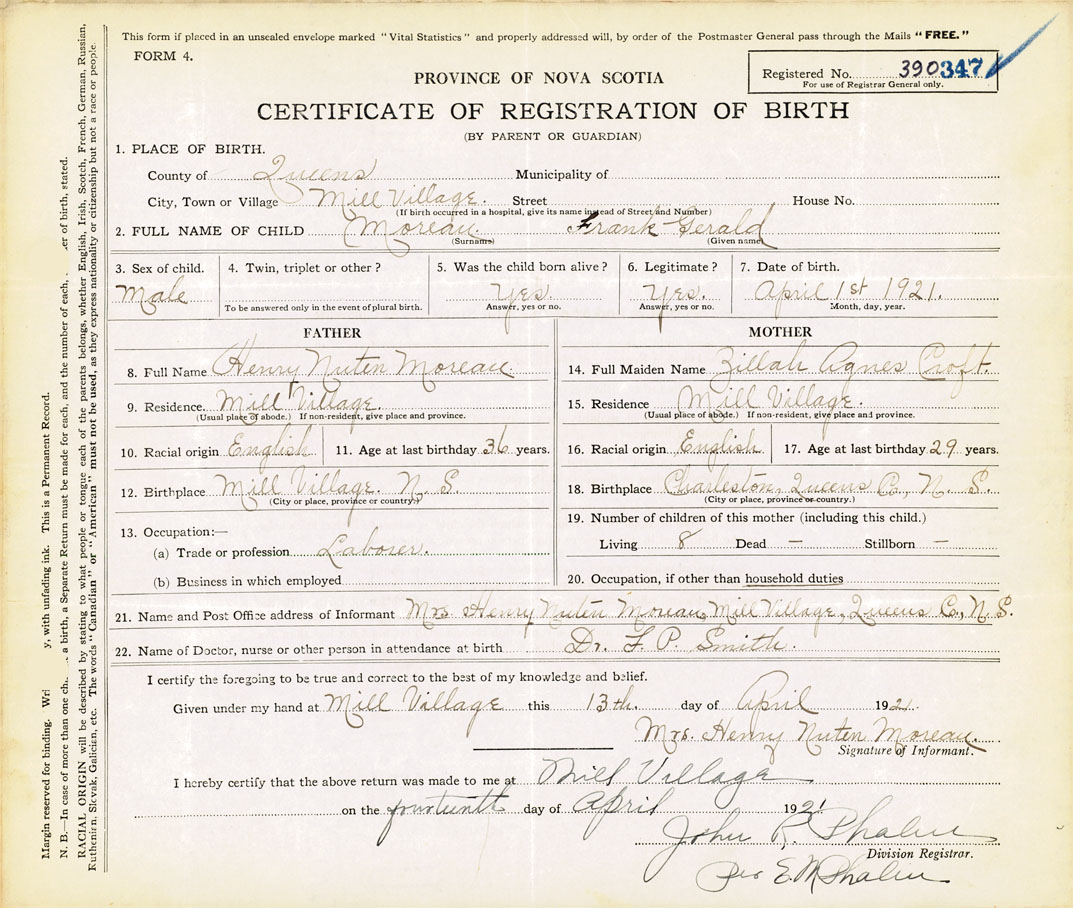 This form if placed in an unsealed envelope marked "Vital Statistics" and properly addressed will, by order of the Postmaster General pass through the Mails "FREE."
FORM 4.
Registered No. 390347
For use of Registrar General only.
PROVINCE OF NOVA SCOTIA
CERTIFICATE OF REGISTRATION OF BIRTH
(BY PARENT OR GUARDIAN)
1. PLACE OF BIRTH.
County of Queens Municipality of
City, Town or Village Mill Village. Street House No.
(If birth occurred in a hospital, give its name instead of Street and Number)
2. FULL NAME OF CHILD Moreau. Frank Gerald
(Surname) (Given name)
3. Sex of child. 4. Twin, triplet or other? 5. Was the child born alive? 6. Legitimate? 7. Date of birth.
Male Yes. Yes. April 1st 1921.
To be answered only in the event of plural birth. Answer, yes or no. Answer, yes or no. Month, day, year.
FATHER
8. Full Name Henry Nuten Moreau.
9. Residence. Mill Village.
(Usual place of abode.) If non-resident, give place and province.
10. Racial origin English 11. Age at last birthday 36 years.
12. Birthplace Mill Village. N. S.
(City or place, province or country)
13. Occupation:—
(a) Trade or profession Laborer.
(b) Business in which employed
MOTHER
14. Full Maiden Name Zillah Agnes Croft.
15. Residence Mill Village.
(Usual place of abode.) If non-resident, give place and province.
16. Racial origin English 17. Age at last birthday 29 years.
18. Birthplace Charleston, Queens Co., N. S.
(City or place, province or country.)
19. Number of children of this mother (including this child.)
Living 8 Dead — Stillborn —
20. Occupation, if other than household duties
21. Name and Post Office address of Informant Mrs. Henry Nuten Moreau, Mill Village, Queens Co., N. S.
22. Name of Doctor, nurse or other person in attendance at birth Dr. F. P. Smith.
I certify the foregoing to be true and correct to the best of my knowledge and belief.
Given under my hand at Mill Village this 13th. day of April 1921.
Mrs. Henry Nuten Moreau.
Signature of Informant.
I hereby certify that the above return was made to me at Mill Village
on the fourteenth day of April 1921
John R. Phalen
Division Registrar.
Per E. M. Phalen
Margin reserved for binding. Wri y, with unfading ink. This is a Permanent Record.
N. B.—In case of more than one ch a birth, a Separate Return must be made for each, and the number of each, er of birth, stated.
RACIAL ORIGIN will be described by stating to what people or tongue each of the parents belongs, whether English, Irish, Scotch, French, German, Russian,
Ruthenian, Slovak, Galician, etc. The words "Canadian" or "American" must not be used, as they express nationality or citizenship but not a race or people.